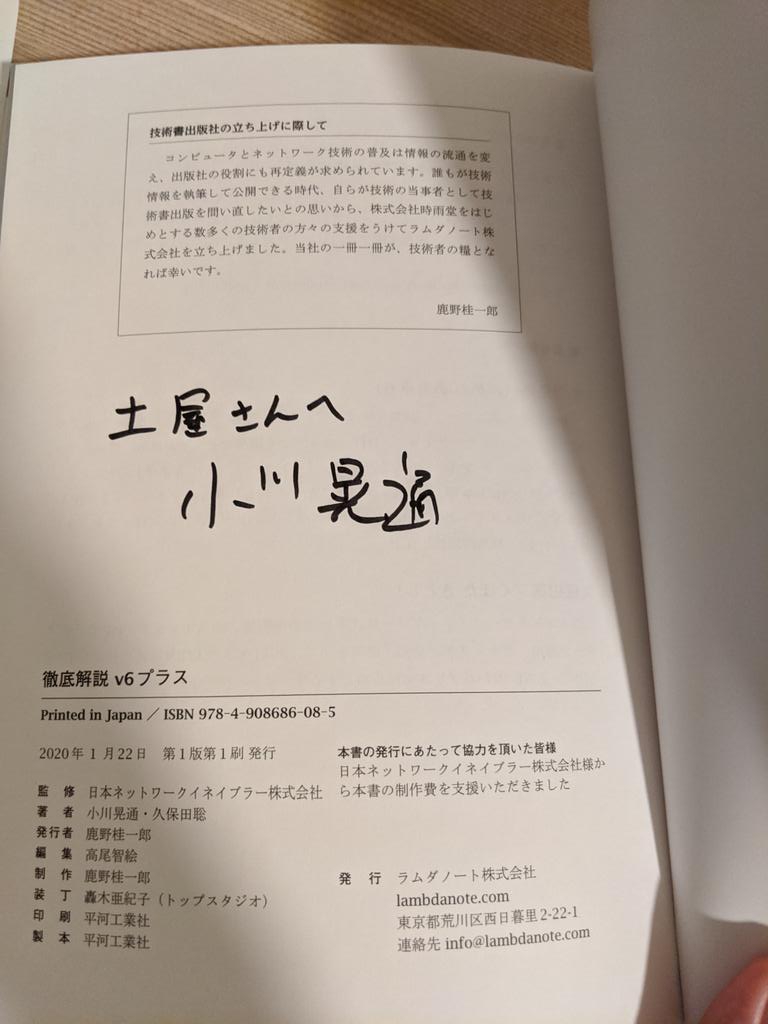 技術書出版社の立ち上げに際して
コンピュータとネットワーク技術の普及は情報の流通を変
え、出版社の役割にも再定義が求められています。誰もが技術
情報を執筆して公開できる時代、自らが技術の当事者として技
術書出版を問い直したいとの思いから、株式会社時雨堂をはじ
めとする数多くの技術者の方々の支援をうけてラムダノート株
式会社を立ち上げました。当社の一冊一冊が、技術者の糧とな
れば幸いです。
鹿野桂一郎
土屋さんへ
小川晃通
徹底解説 v6プラス
Printed in Japan／ISBN 978-4-908686-08-5
2020年1月22日 第1版第1刷 発行
監修 日本ネットワークイネイブラー株式会社
著者 小川晃通・久保田聡
発行者 鹿野桂一郎
編集 高尾智絵
制作 鹿野桂一郎
装丁 轟木亜紀子（トップスタジオ）
印刷 平河工業社
製本 平河工業社
本書の発行にあたって協力を頂いた皆様
日本ネットワークイネイブラー株式会社様か
ら本書の制作費を支援いただきました
発行 ラムダノート株式会社
lambdanote.com
東京都荒川区西日暮里2-22-1
連絡先 info@lambdanote.com